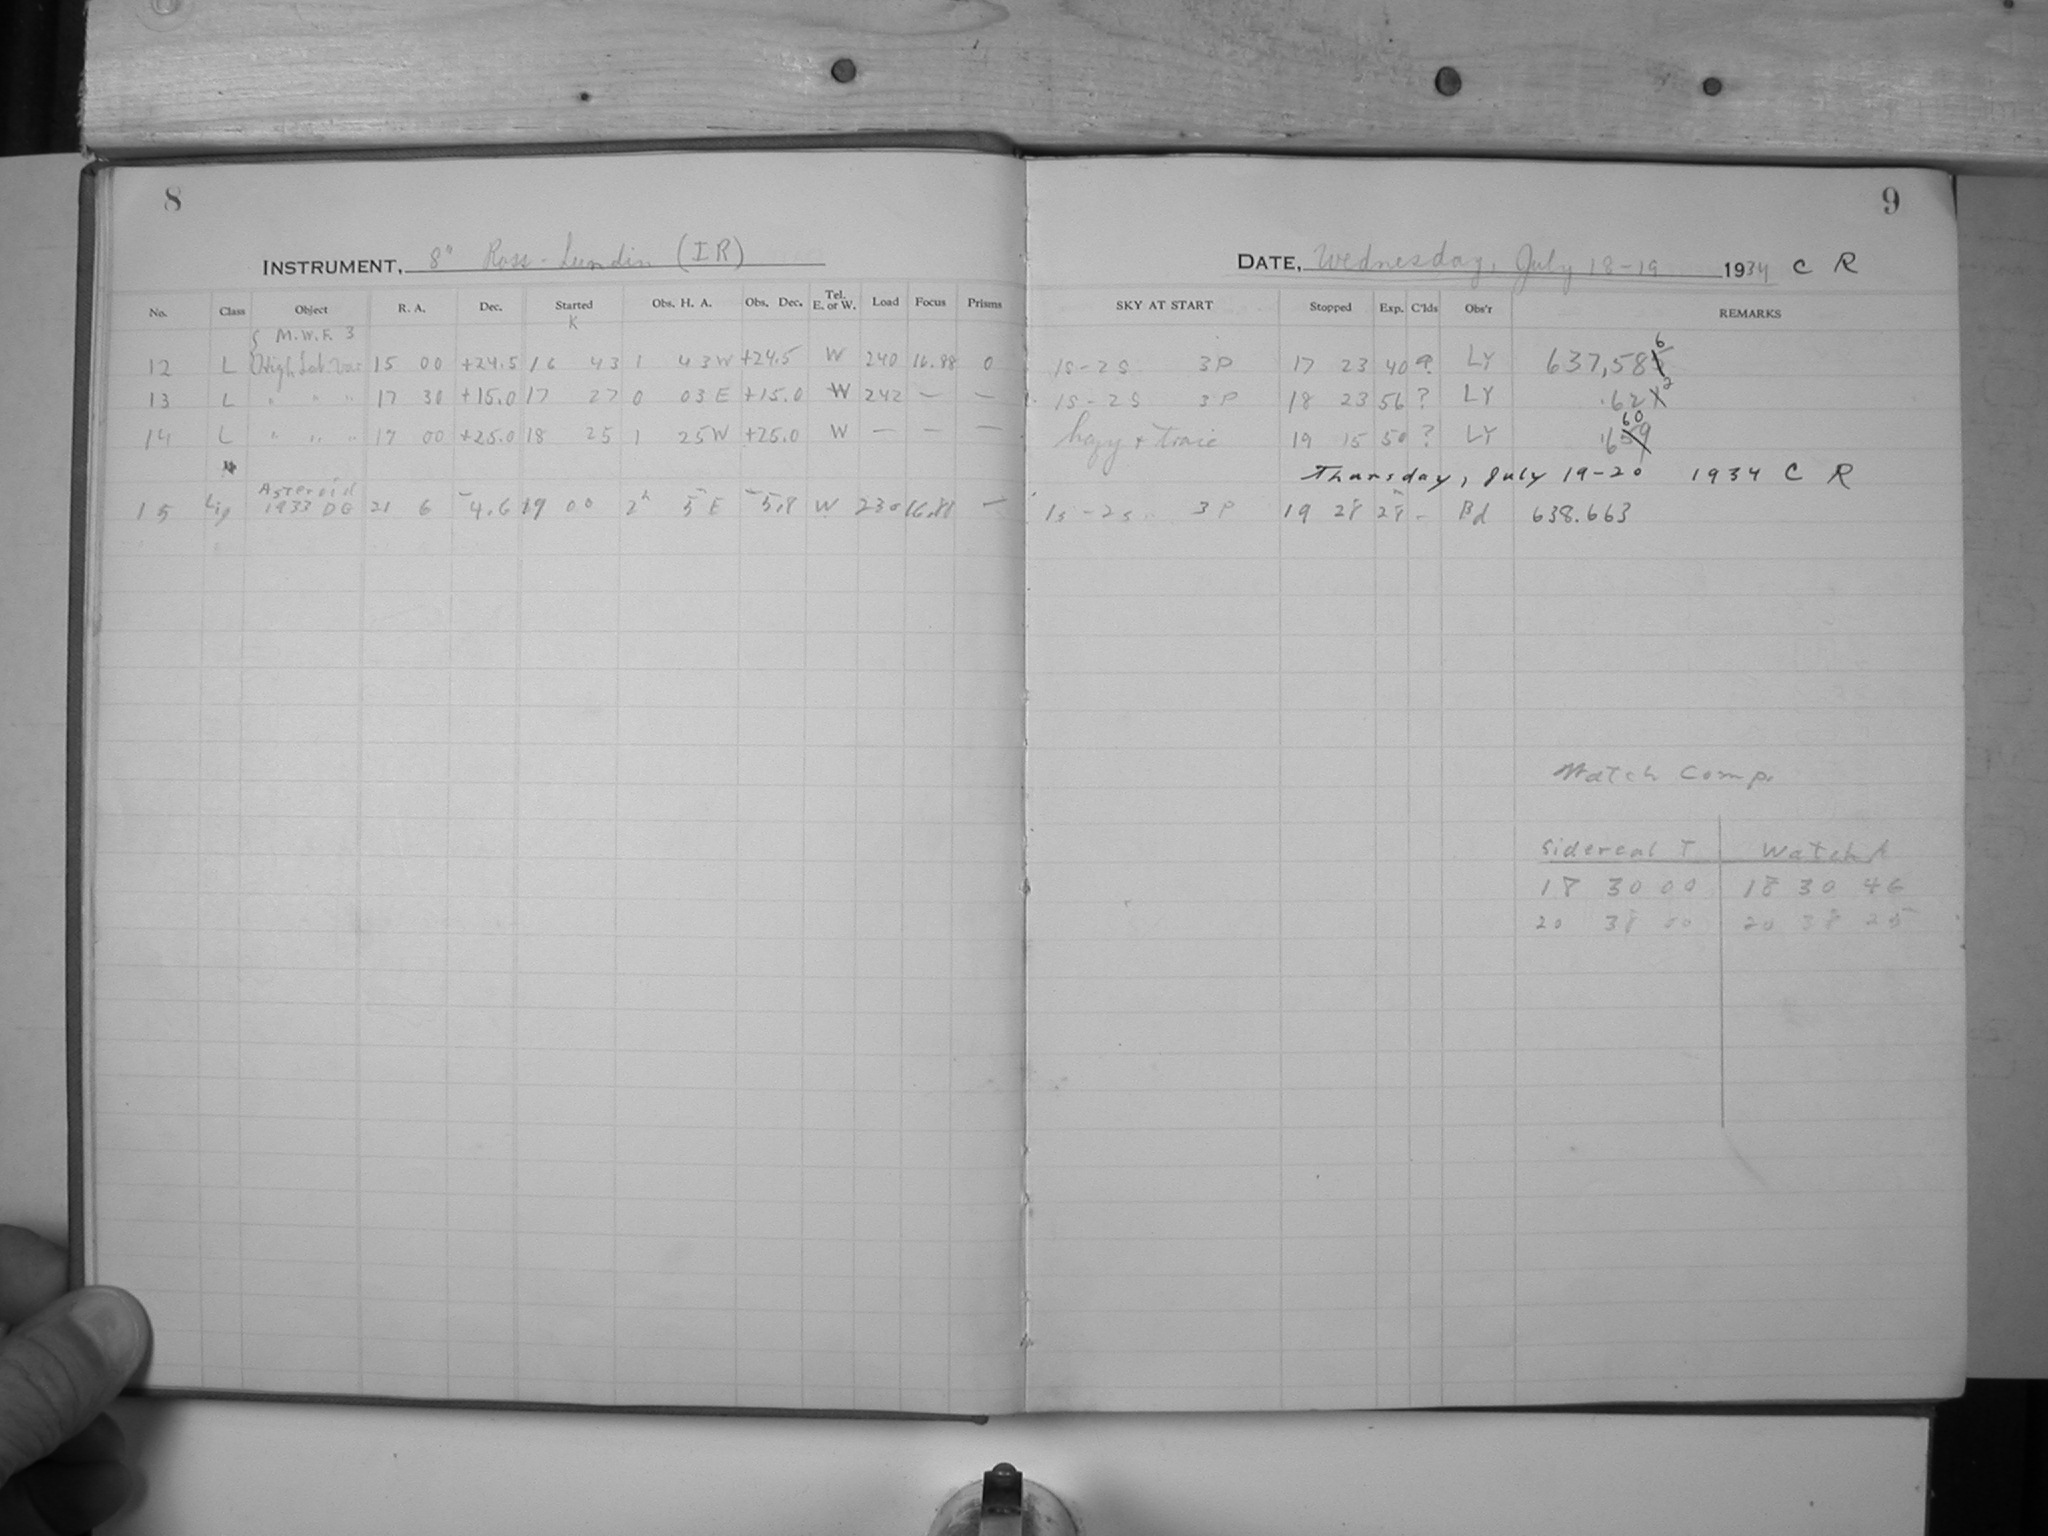 8
INSTRUMENT, 8" Ross-Lundin (IR)
No. Class Object R. A. Dec. Started Obs. H. A. Obs. Dec. Tel. E. or W. Load Focus Prisms
K
M.W.F. 3
12 L High Lat. Var 15 00 +24.5 16 43 1 43 W +24.5 W 240 16.88 0
13 L " " " 17 30 +15.0 17 27 0 03 E +15.0 W 242 — —
14 L " " " 17 00 +25.0 18 25 1 25 W +25.0 W — — —
Asteroid
15 1933 DG 21 6 -4.6 19 00 2h 5 E -5.8 W 230 16.88 —
9
DATE, Wednesday, July 18-19 1934 C R
SKY AT START Stopped Exp. C'lds Obs'r REMARKS
6
1S-2S 3P 17 23 40 ? LY 637,585
2
1S-2S 3P 18 23 56 ? LY .62
60
hazy + 19 15 50 ? LY .659
Thursday, July 19-20 1934 C R
1s-2s 3P 19 28 28 - Bd 638.663
Watch Comp.
Sidereal T Watch
18 30 00 18 30 46
20 38 00 20 38 25